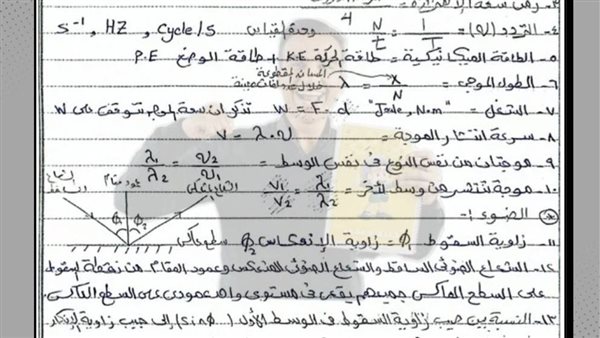 ٤- التردد (υ) = 1/T = N/t وحدة القياس S⁻¹ , HZ , Cycle/S
٥- الطاقة الميكانيكية = طاقة الحركة K.E + طاقة الوضع P.E
٦- الطول الموجى = λ = X/N
٧- الشغل = W = F.d "Joule, N.m" تذكر ان سعة الموجه تتوقف على W
٨- سرعة انتشار الموجة = V = λ.υ
٩- موجتان من نفس النوع فى نفس الوسط = λ1/λ2 = υ2/υ1
١٠- موجة تنتشر من وسط لآخر = V1/V2 = λ1/λ2
الضوء :-
١١- زاوية السقوط Φ1 = زاوية الإنعكاس Φ2 سطح عاكس
Φ1 Φ2
١٢- الشعاع الضوئى الساقط والشعاع الضوئى المنعكس وعمود المقام من نقطة السقوط
على السطح العاكس جميعهم يقعى فى مستوى واحد عمودى على السطح العاكس
١٣- النسبة بين جيب زاوية السقوط فى الوسط الأول (Sin Φ) إلى جيب زاوية الإنكسار